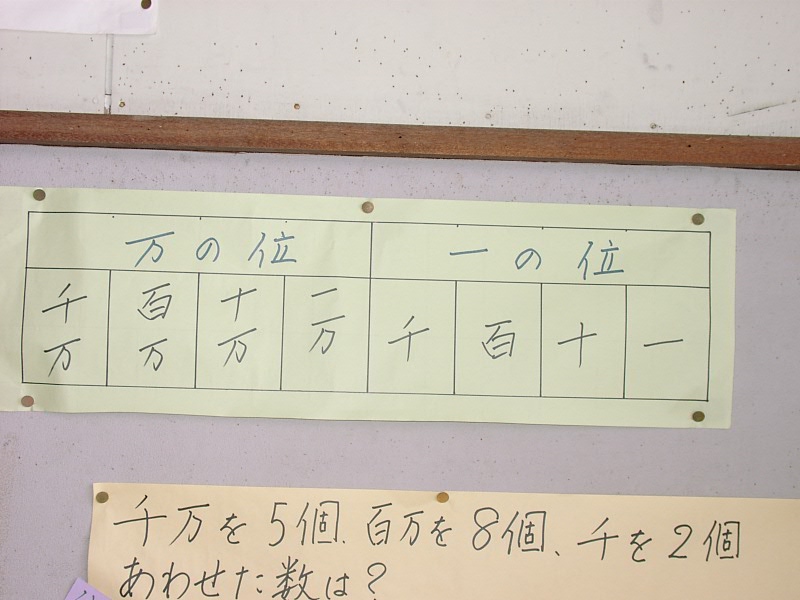 万の位 一の位
千万 百万 十万 一万 千 百 十 一
千万を5個、百万を8個、千を2個
あわせた数は?